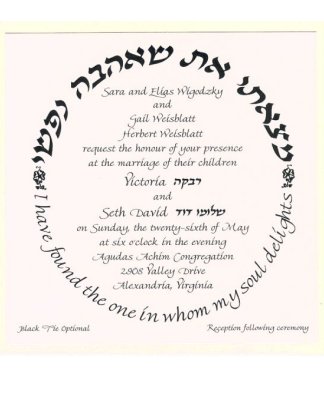 מצאתי את שאהבה נפשי
Sara and Elias Wigodzky
and
Gail Weisblatt
Herbert Weisblatt
request the honour of your presence
at the marriage of their children
Victoria רבקה
and
Seth David שלומו דוד
on Sunday, the twenty-sixth of May
at six o'clock in the evening
Agudas Achim Congregation
2908 Valley Drive
Alexandria, Virginia
I have found the one in whom my soul delights
Black Tie Optional
Reception following ceremony